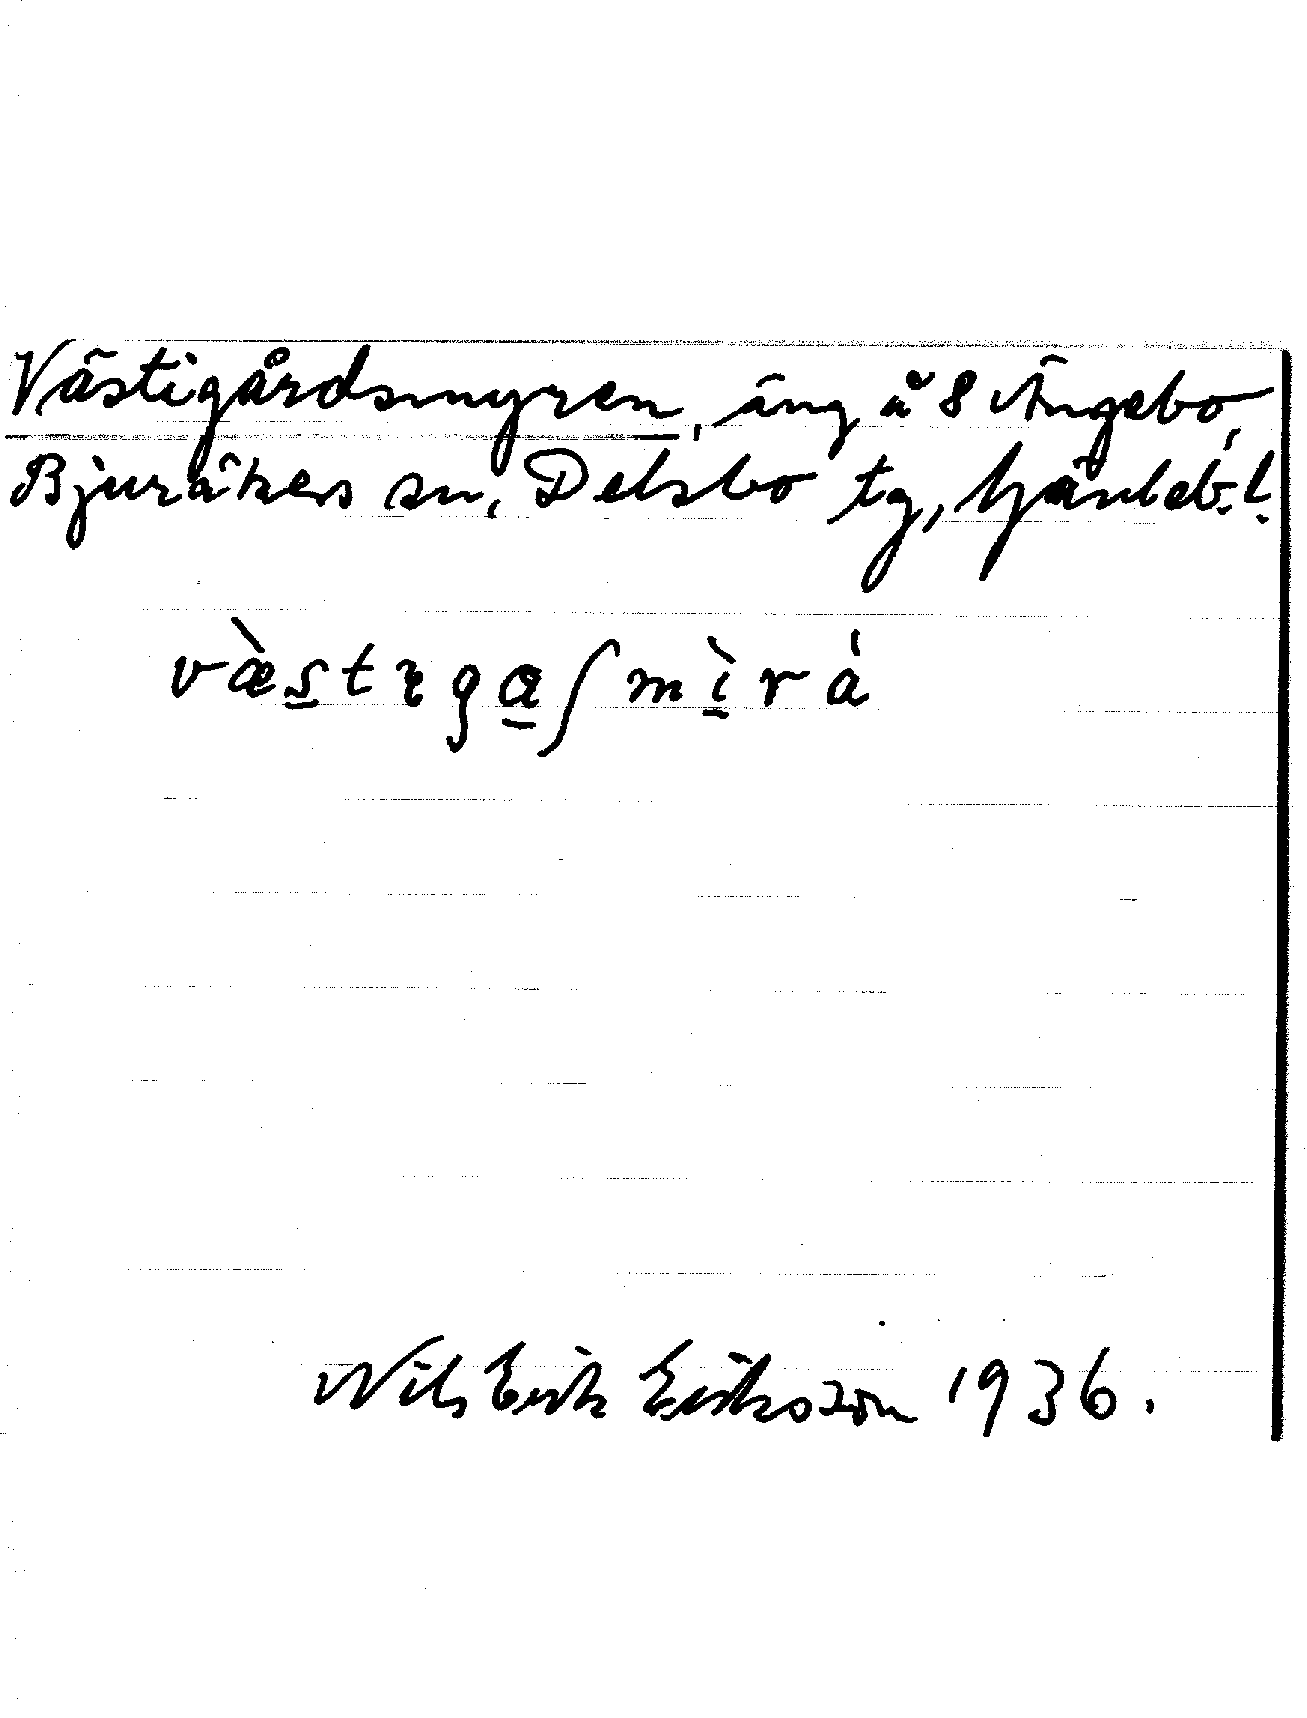 Västigårdsmyren, äng å 8 Ängebo,
Bjuråkers sn, Delsbo tg, Gävleb. l.
væ̀s̲tıga̲ʃmì̲rȧ
Nils Erik Eriksson 1936.